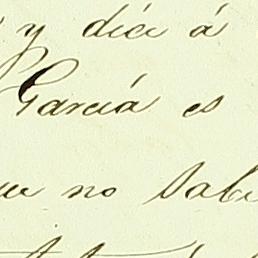 y dice á
García es
que no sabe